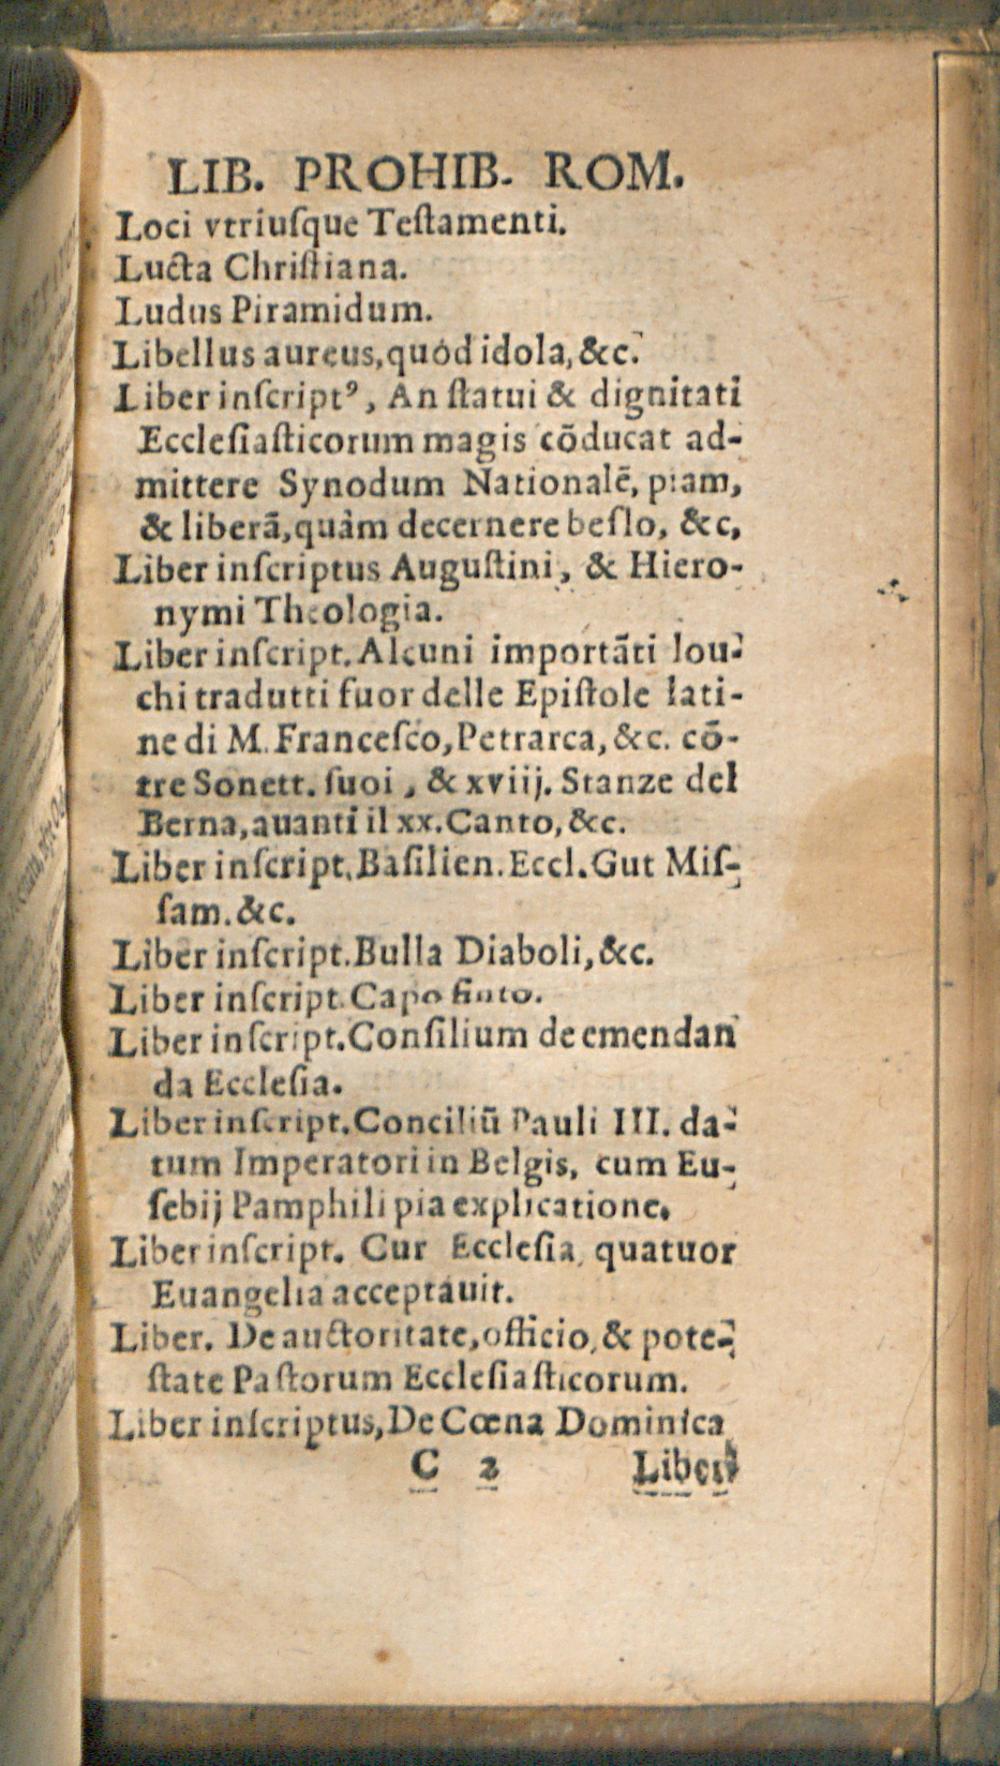 LIB. PROHIB. ROM.
Loci vtriuſque Teſtamenti.
Lucta Chriſtiana.
Ludus Piramidum.
Libellus aureus, quód idola, &c.
Liber inſcriptꝰ, An ſtatui & dignitati
Eccleſiaſticorum magis cōducat ad-
mittere Synodum Nationalē, piam,
& liberā, quàm decernere beſlo, &c,
Liber inſcriptus Auguſtini, & Hiero-
nymi Theologia.
Liber inſcript. Alcuni importāti lou-
chi tradutti fuor delle Epiſtole lati-
ne di M. Franceſco, Petrarca, &c. cō-
tre Sonett. ſuoi, & xviij. Stanze del
Berna, auanti il xx. Canto, &c.
Liber inſcript. Baſilien. Eccl. Gut Miſ-
ſam. &c.
Liber inſcript. Bulla Diaboli, &c.
Liber inſcript. Capo finto.
Liber inſcript. Conſilium de emendan
da Eccleſia.
Liber inſcript. Conciliū Pauli III. da-
tum Imperatori in Belgis, cum Eu-
ſebij Pamphili pia explicatione.
Liber inſcript. Cur Eccleſia quatuor
Euangelia acceptauit.
Liber. De auctoritate, officio, & pote-
ſtate Paſtorum Eccleſiaſticorum.
Liber inſcriptus, De Cœna Dominica
C 2 Liber